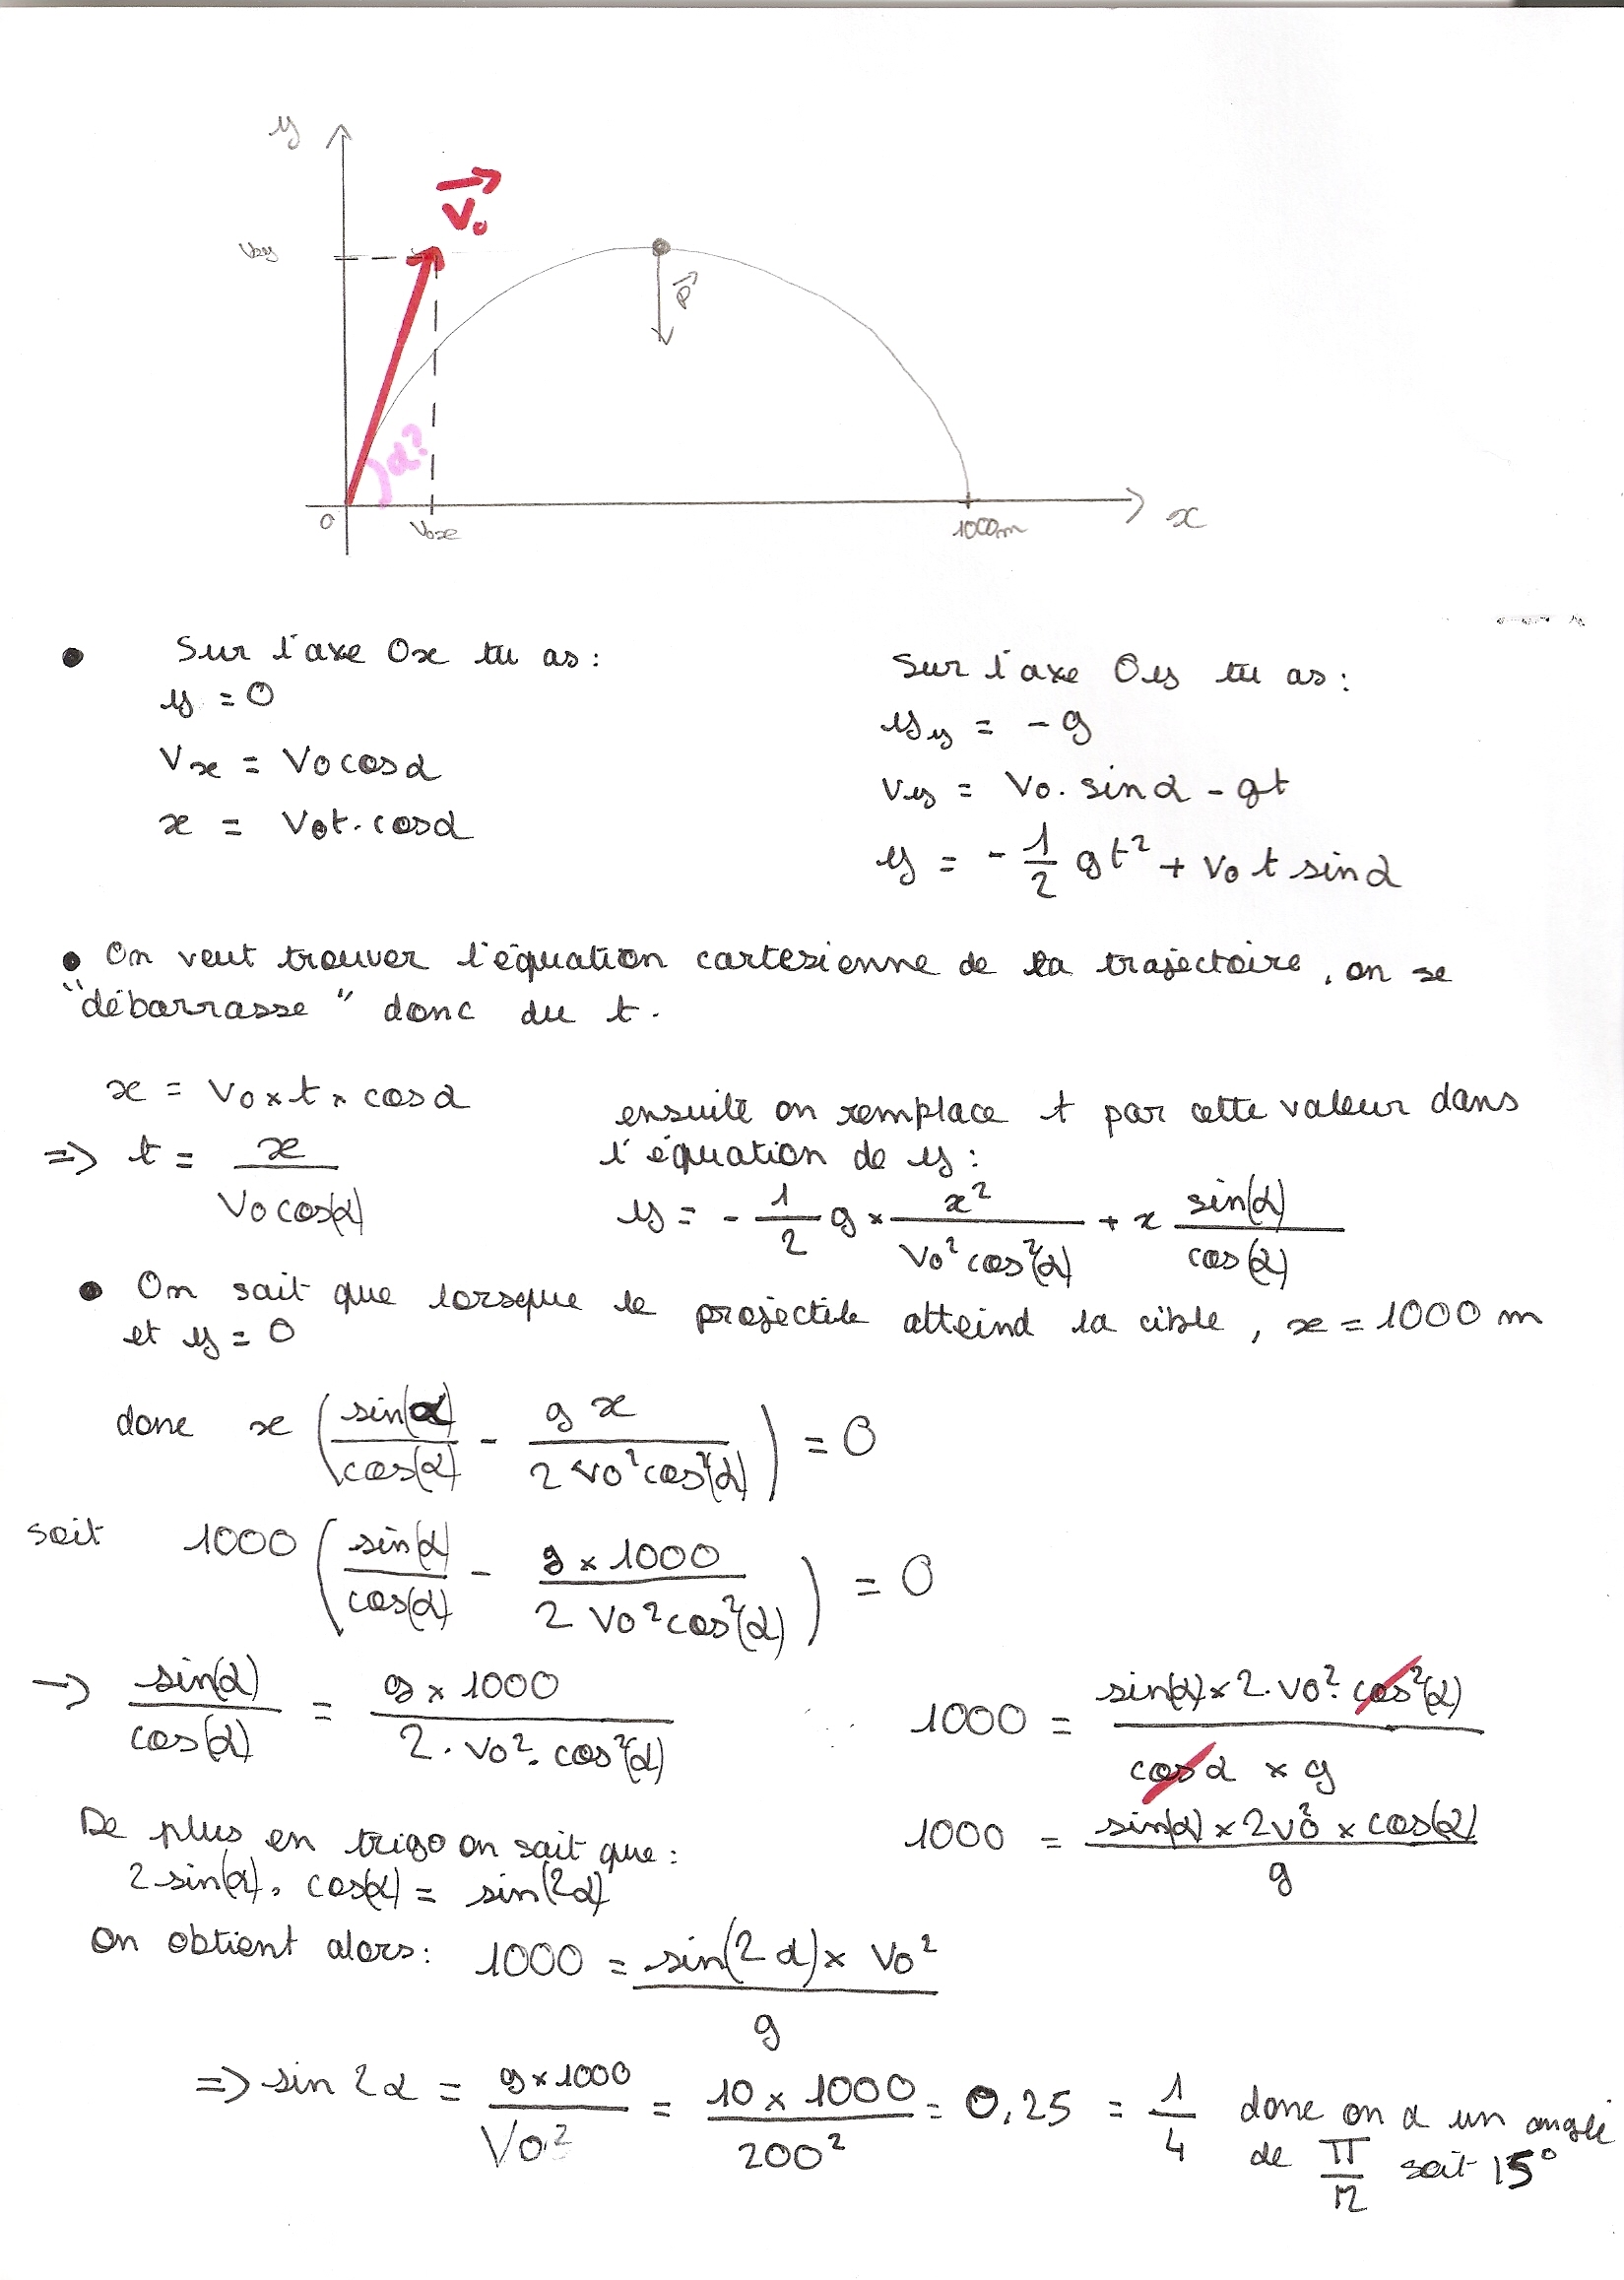 y
V₀
V₀y
P
α?
O
V₀x
1000m
x
• Sur l'axe Ox tu as :
y = 0
Vx = V0 cosα
x = V0t.cosα
Sur l'axe Oy tu as :
yy = -g
Vy = V0. sinα - gt
y = - 1/2 gt² + V0 t sinα
• On veut trouver l'équation cartesienne de la trajectoire, on se
"débarrasse" donc du t.
x = V0 × t × cosα
=> t = x / V0 cos(α)
ensuite on remplace t par cette valeur dans
l'équation de y :
y = - 1/2 g × x² / V0² cos²(α) + x sin(α) / cos(α)
• On sait que lorsque le projectile atteind la cible, x = 1000 m
et y = 0
donc x ( sin(α) / cos(α) - g x / 2 V0² cos²(α) ) = 0
soit 1000 ( sin(α) / cos(α) - g × 1000 / 2 V0² cos²(α) ) = 0
→ sin(α) / cos(α) = g × 1000 / 2 . V0² . cos²(α)
1000 = sin(α) × 2 . V0² . cos²(α) / cosα × g
De plus en trigo on sait que :
2 sin(α) . cos(α) = sin(2α)
1000 = sin(α) × 2V0² × cos(α) / g
On obtient alors : 1000 = sin(2α) × V0² / g
=> sin 2α = g × 1000 / V0² = 10 × 1000 / 200² = 0,25 = 1/4 donc on a un angle
de π/12 soit 15°